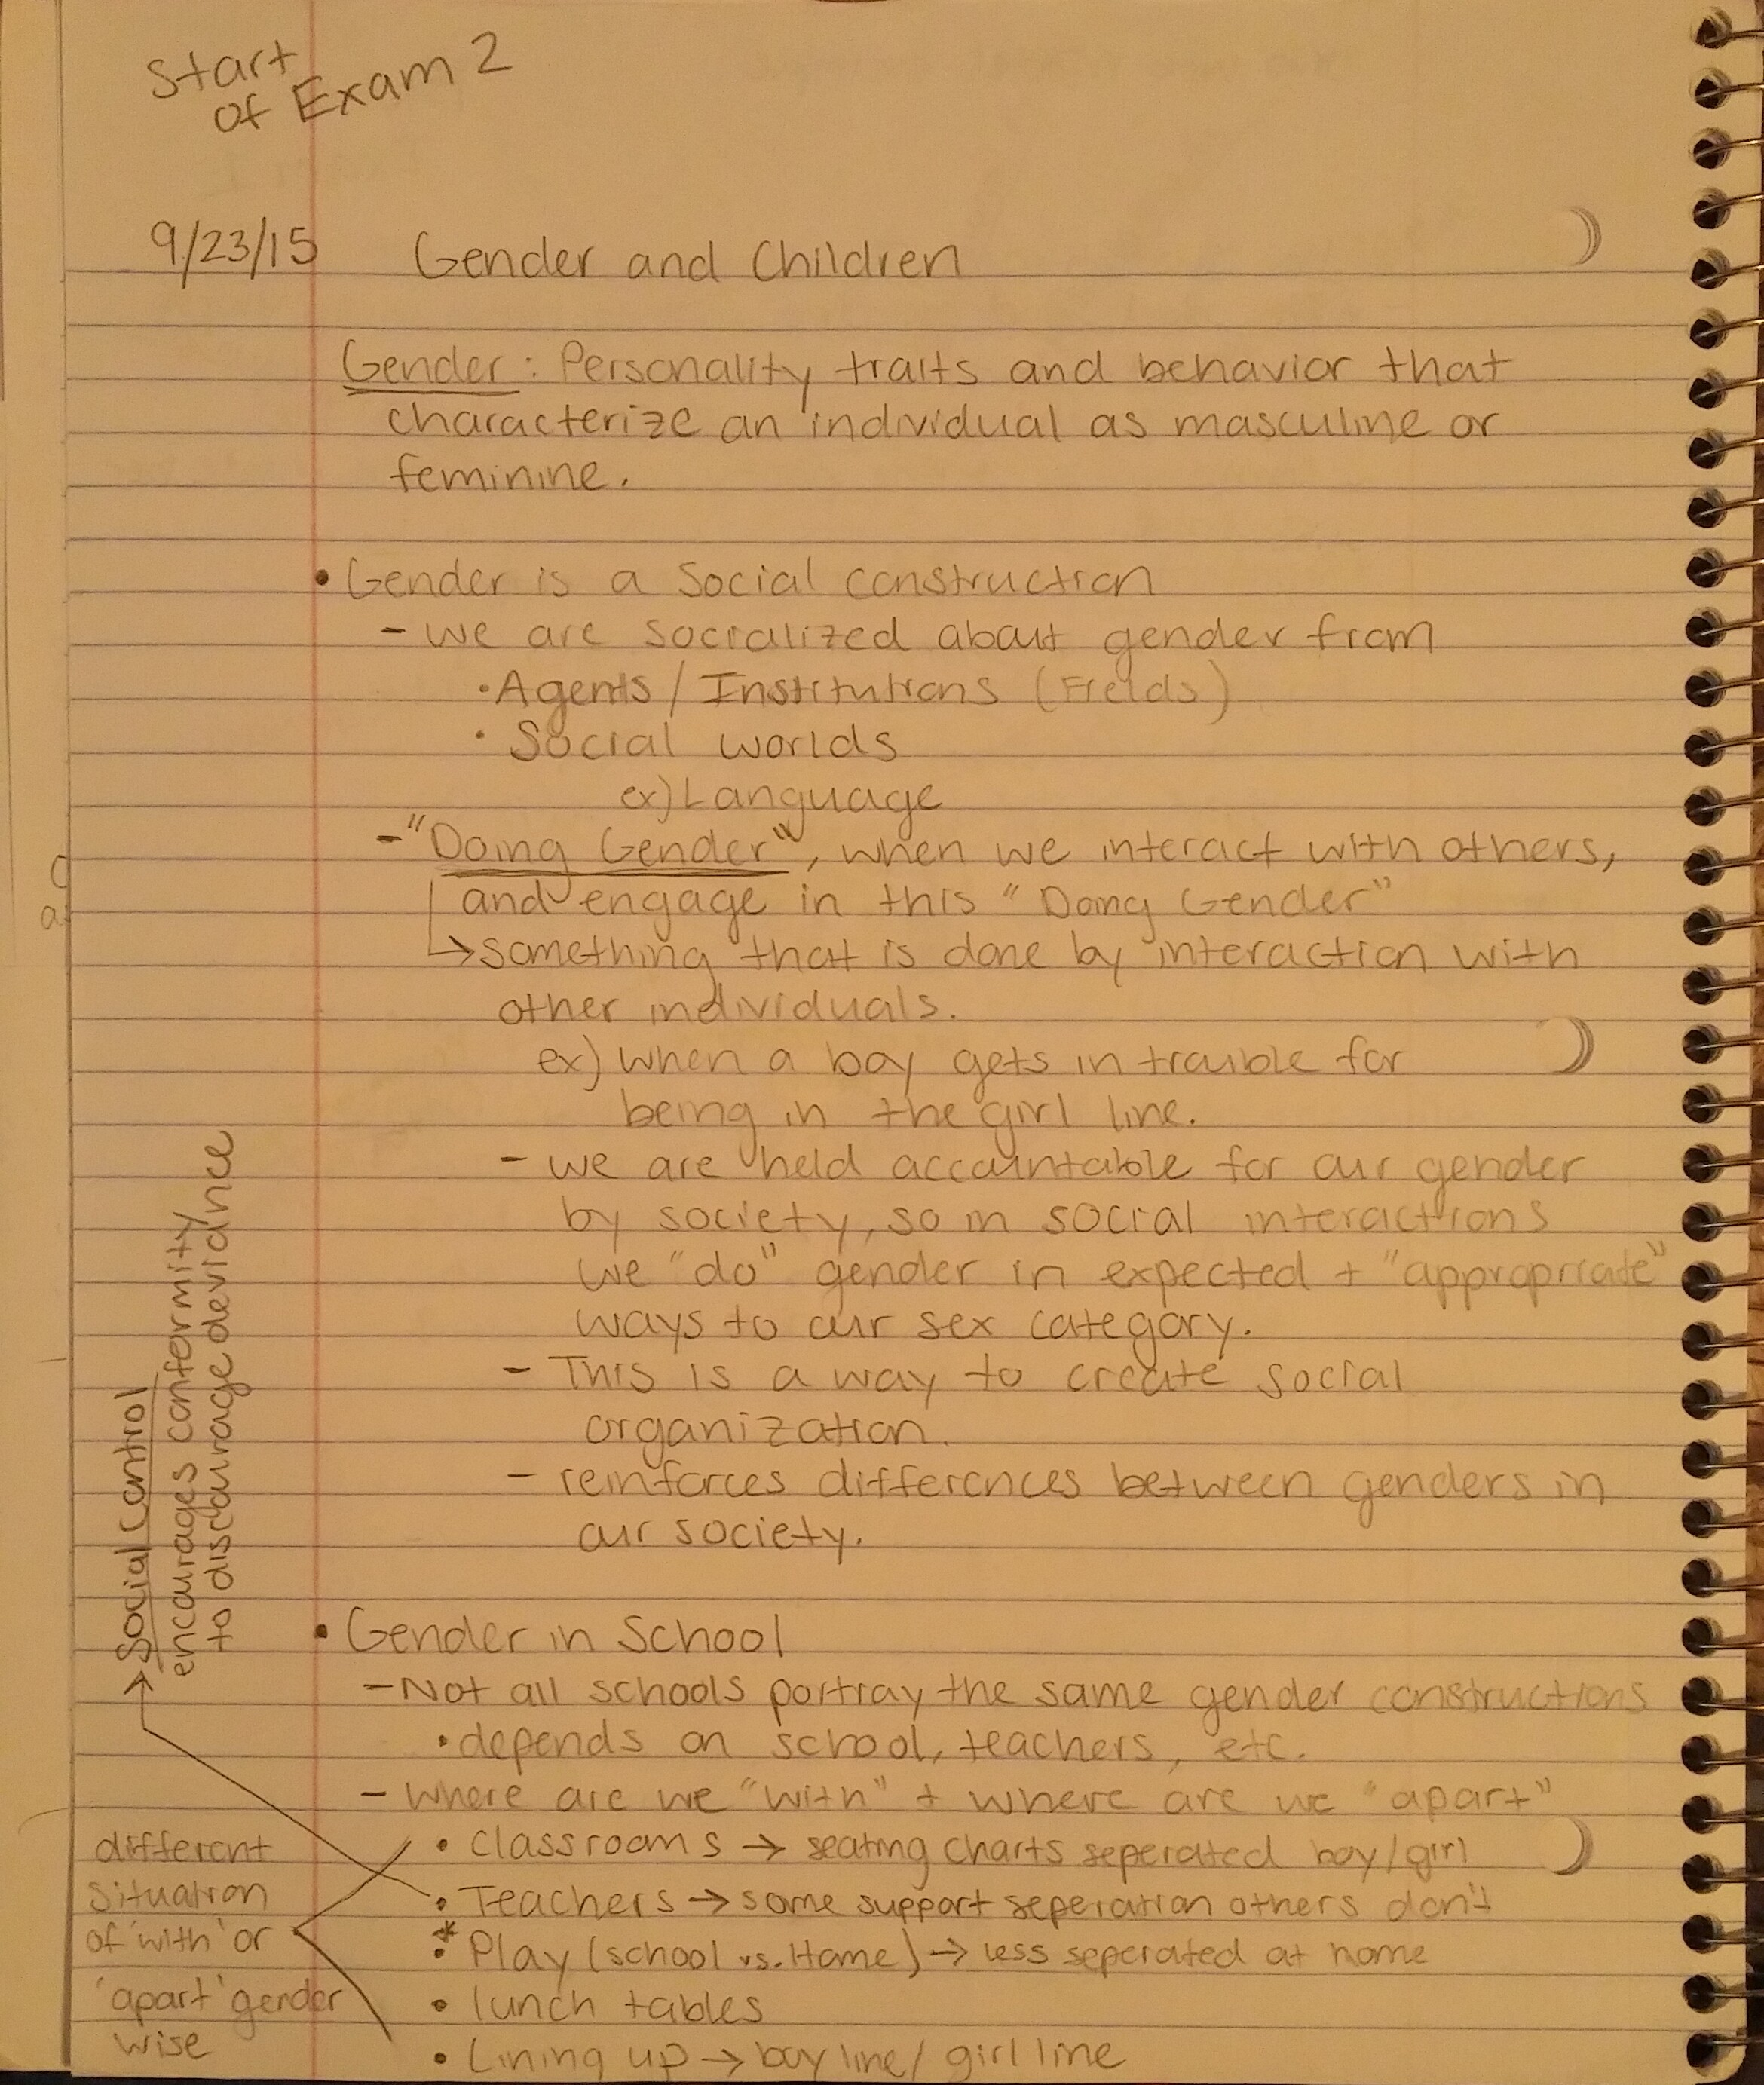 Start
of Exam 2
9/23/15 Gender and Children
Gender: Personality traits and behavior that
characterize an individual as masculine or
feminine.
• Gender is a Social construction
- we are socialized about gender from
• Agents / Institutions (Fields)
• Social worlds
ex) Language
- "Doing Gender", when we interact with others,
and engage in this "Doing Gender"
↳ something that is done by interaction with
other individuals.
ex) when a boy gets in trouble for
being in the girl line.
- we are held accountable for our gender
by society, so in social interactions
we "do" gender in expected + "appropriate"
ways to our sex category.
- This is a way to create social
organization.
- reinforces differences between genders in
our society.
• Gender in School
- Not all schools portray the same gender constructions
• depends on school, teachers, etc.
- where are we "with" + where are we "apart"
• Classrooms → seating charts seperated boy/girl
• Teachers → some support seperation others don't
* • Play (school vs. Home) → less seperated at home
• lunch tables
• Lining up → boy line / girl line
Social control
encourages conformity
to discourage deviance
different
situation
of 'with' or
'apart' gender
wise